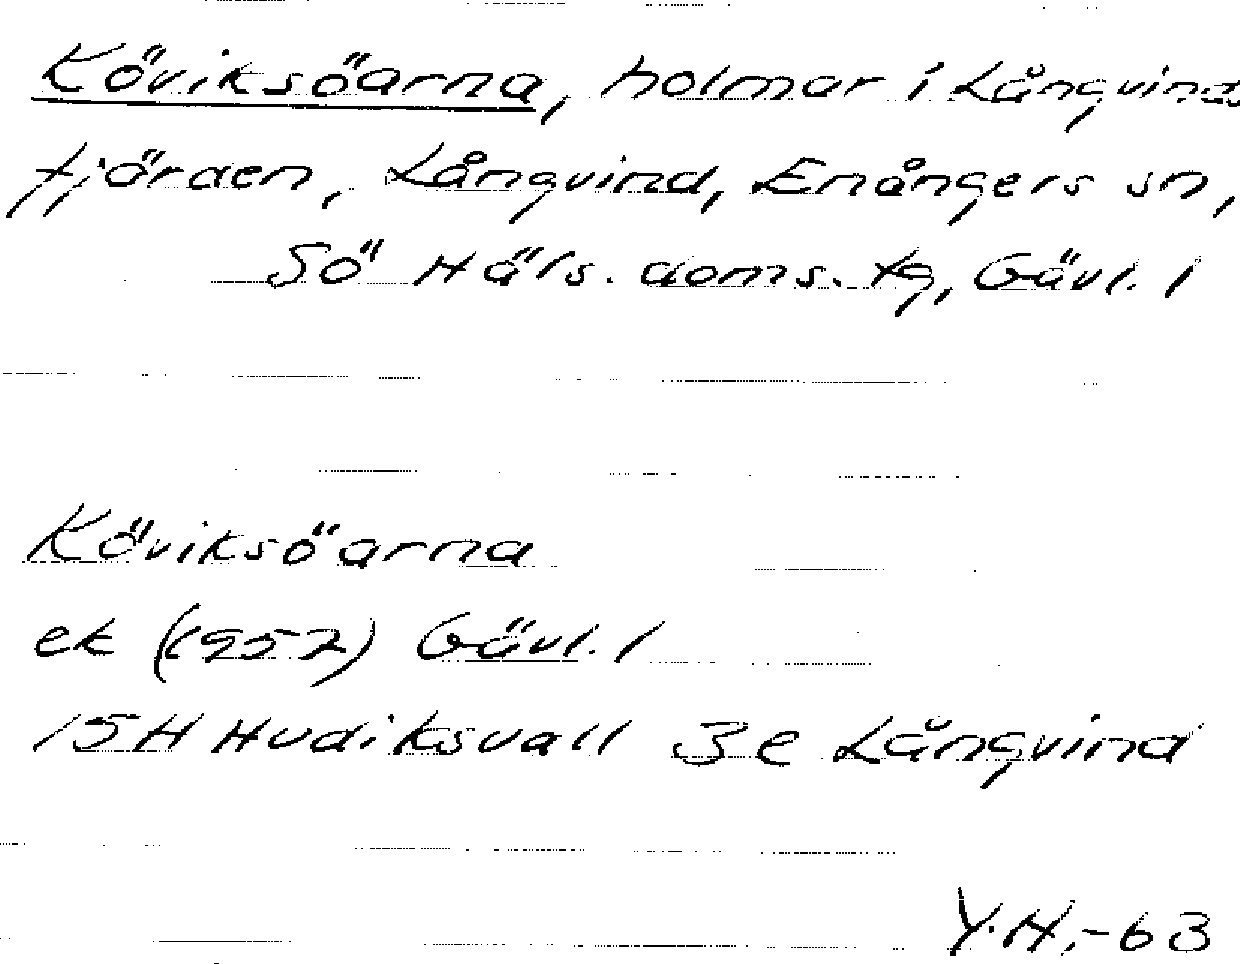 Köviksöarna, holmar i Långvinds
fjärden, Långvind, Enångers sn,
Sö Häls. doms. tg, Gävl. l
Köviksöarna
ek (1952) Gävl. l
15H Hudiksvall 3e Långvind
Y.H.-63